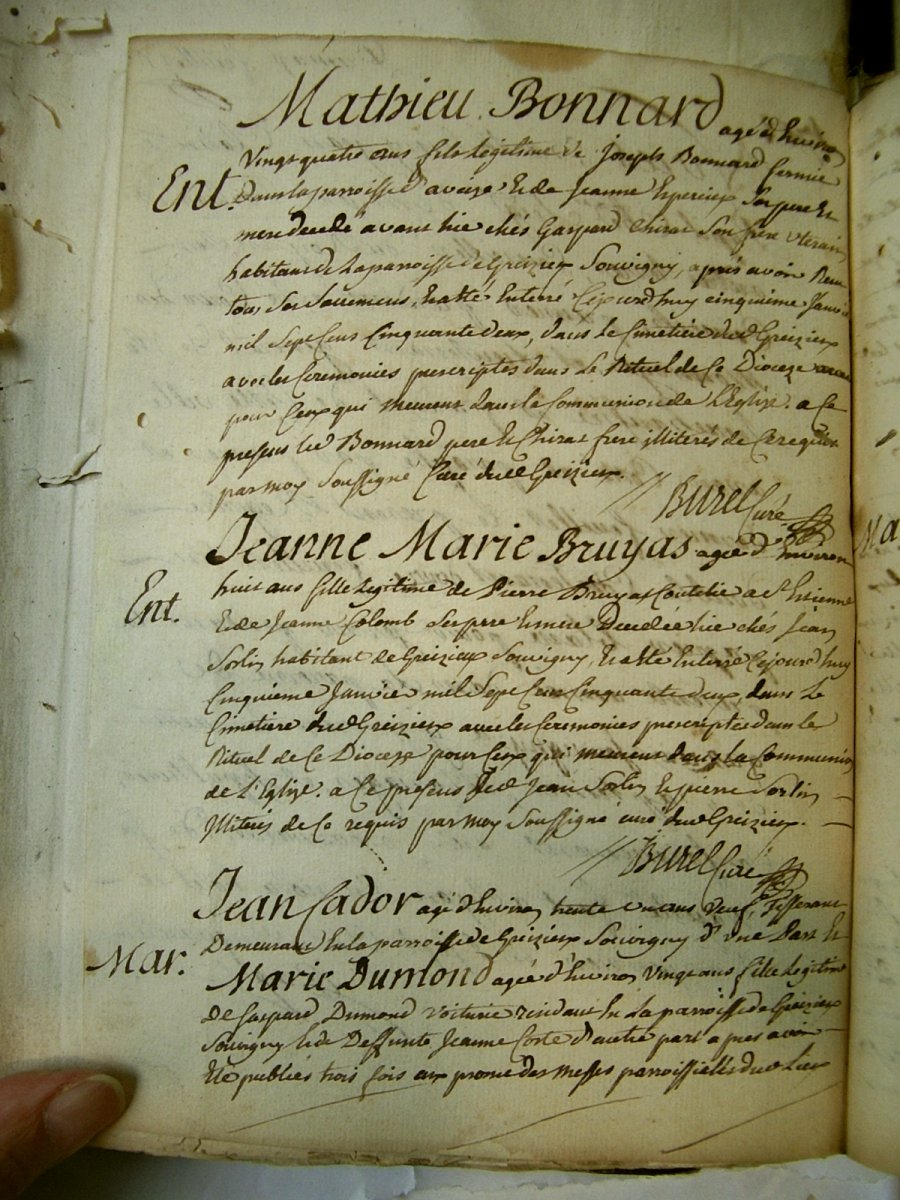 Mathieu Bonnard agé d'Environ
Ent.
Vingt quatre ans fils légitime de Joseph Bonnard fermie
Dans la parroisse d'aveize & de Jeanne Esperciux Ses pere &
mere decedé avant hie chés Gaspard Chirat Son frere Uterain
habitant de la parroisse de Greizieux Souvigny, après avoir Recu
tous Ses Sacremens, Ha esté Enterré Cejourd'huy cinquième Janvie
mil Sept Cens Cinquante deux, dans le Cimetière dud Greizieux
avec les Ceremonies prescriptes dans le Rituel de Ce Dioceze
pour Ceux qui meurent dans la Communion de L'Eglize. a Ce
presens led Bonnard pere & Chirat frere illiterés de Ce requis
par moy Soussigné Curé dud Greizieux.
Burel Curé
Jeanne Marie Bruyas agée d'Environ
Ent.
huit ans fille légitime de Pierre Bruyas Coutelie a St Estienne
& de Jeanne Colomb Ses pere & mere Decedée hie chés Jean
Sorlin habitant de Greizieux Souvigny, Ha esté Enterrée Cejourd'huy
Cinquieme Janvie mil Sept Cens Cinquante deux, dans Le
Cimetiere dud Greizieux avec les Ceremonies prescriptes dans le
Rituel de Ce Dioceze pour Ceux qui meurent dans la Communion
de L'Eglize. a Ce presens led Jean Sorlin & pierre Sorlin
Illiterés de Ce requis par moy Soussigné curé dud Greizieux.
Burel Curé
Jean Cador agé d'Environ trente un ans Veuf, Tisserant
Demeurant En la parroisse de Greizieux Souvigny d'une Part &
Mar.
Marie Dumond agée d'Environ Vingt ans fille Legitime
de Gaspard Dumond voiturie residant En La parroisse de Greizieux
Souvigny & de Deffunte Jeanne Coste d'autre part apres avoir
Eté publiés trois fois aux prone des messes parroissielles dud Lieu